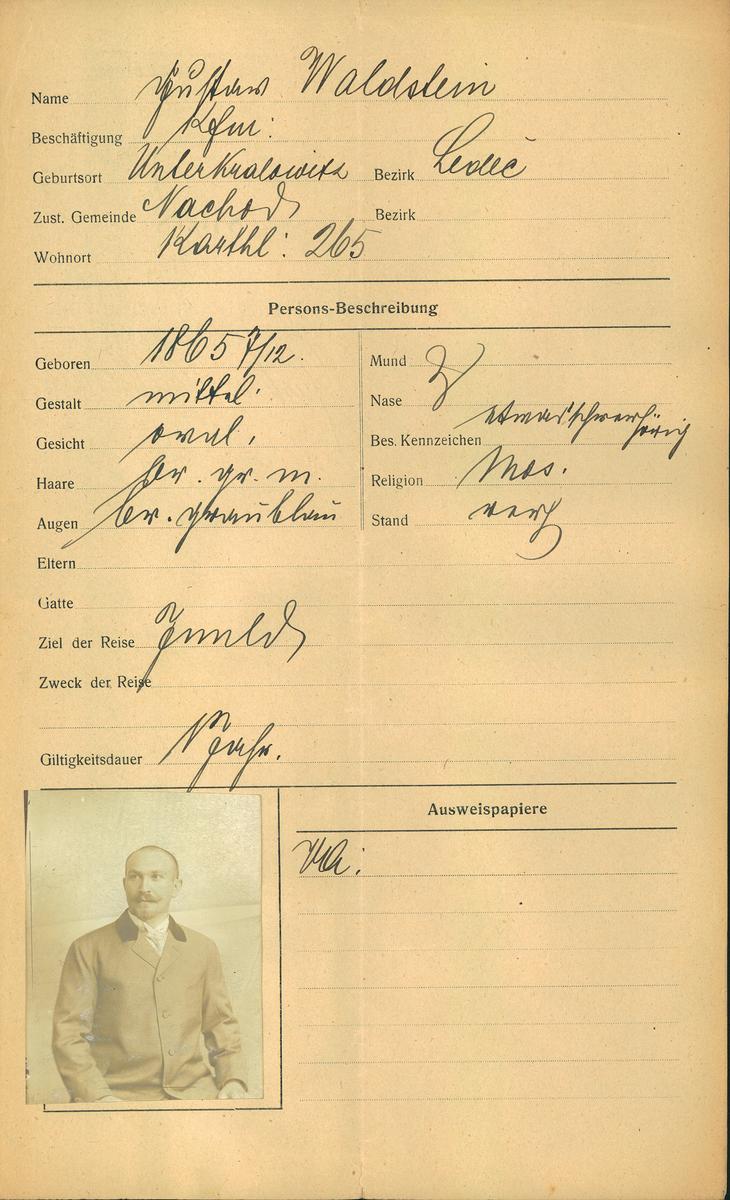 Name Gustav Waldstein
Beschäftigung Kfm:
Geburtsort Unterkralowitz Bezirk Ledeč
Zust. Gemeinde Nachod Bezirk
Wohnort Karthl: 265
Persons-Beschreibung
Geboren 1865 7/12.
Gestalt mittel.
Gesicht oval.
Haare br. gr. m.
Augen br. graublau
Mund
Nase
Bes. Kennzeichen etwas schwerhörig
Religion Mos.
Stand verh
Eltern
Gatte
Ziel der Reise Inuld
Zweck der Reise
Giltigkeitsdauer 1 Jahr.
Ausweispapiere